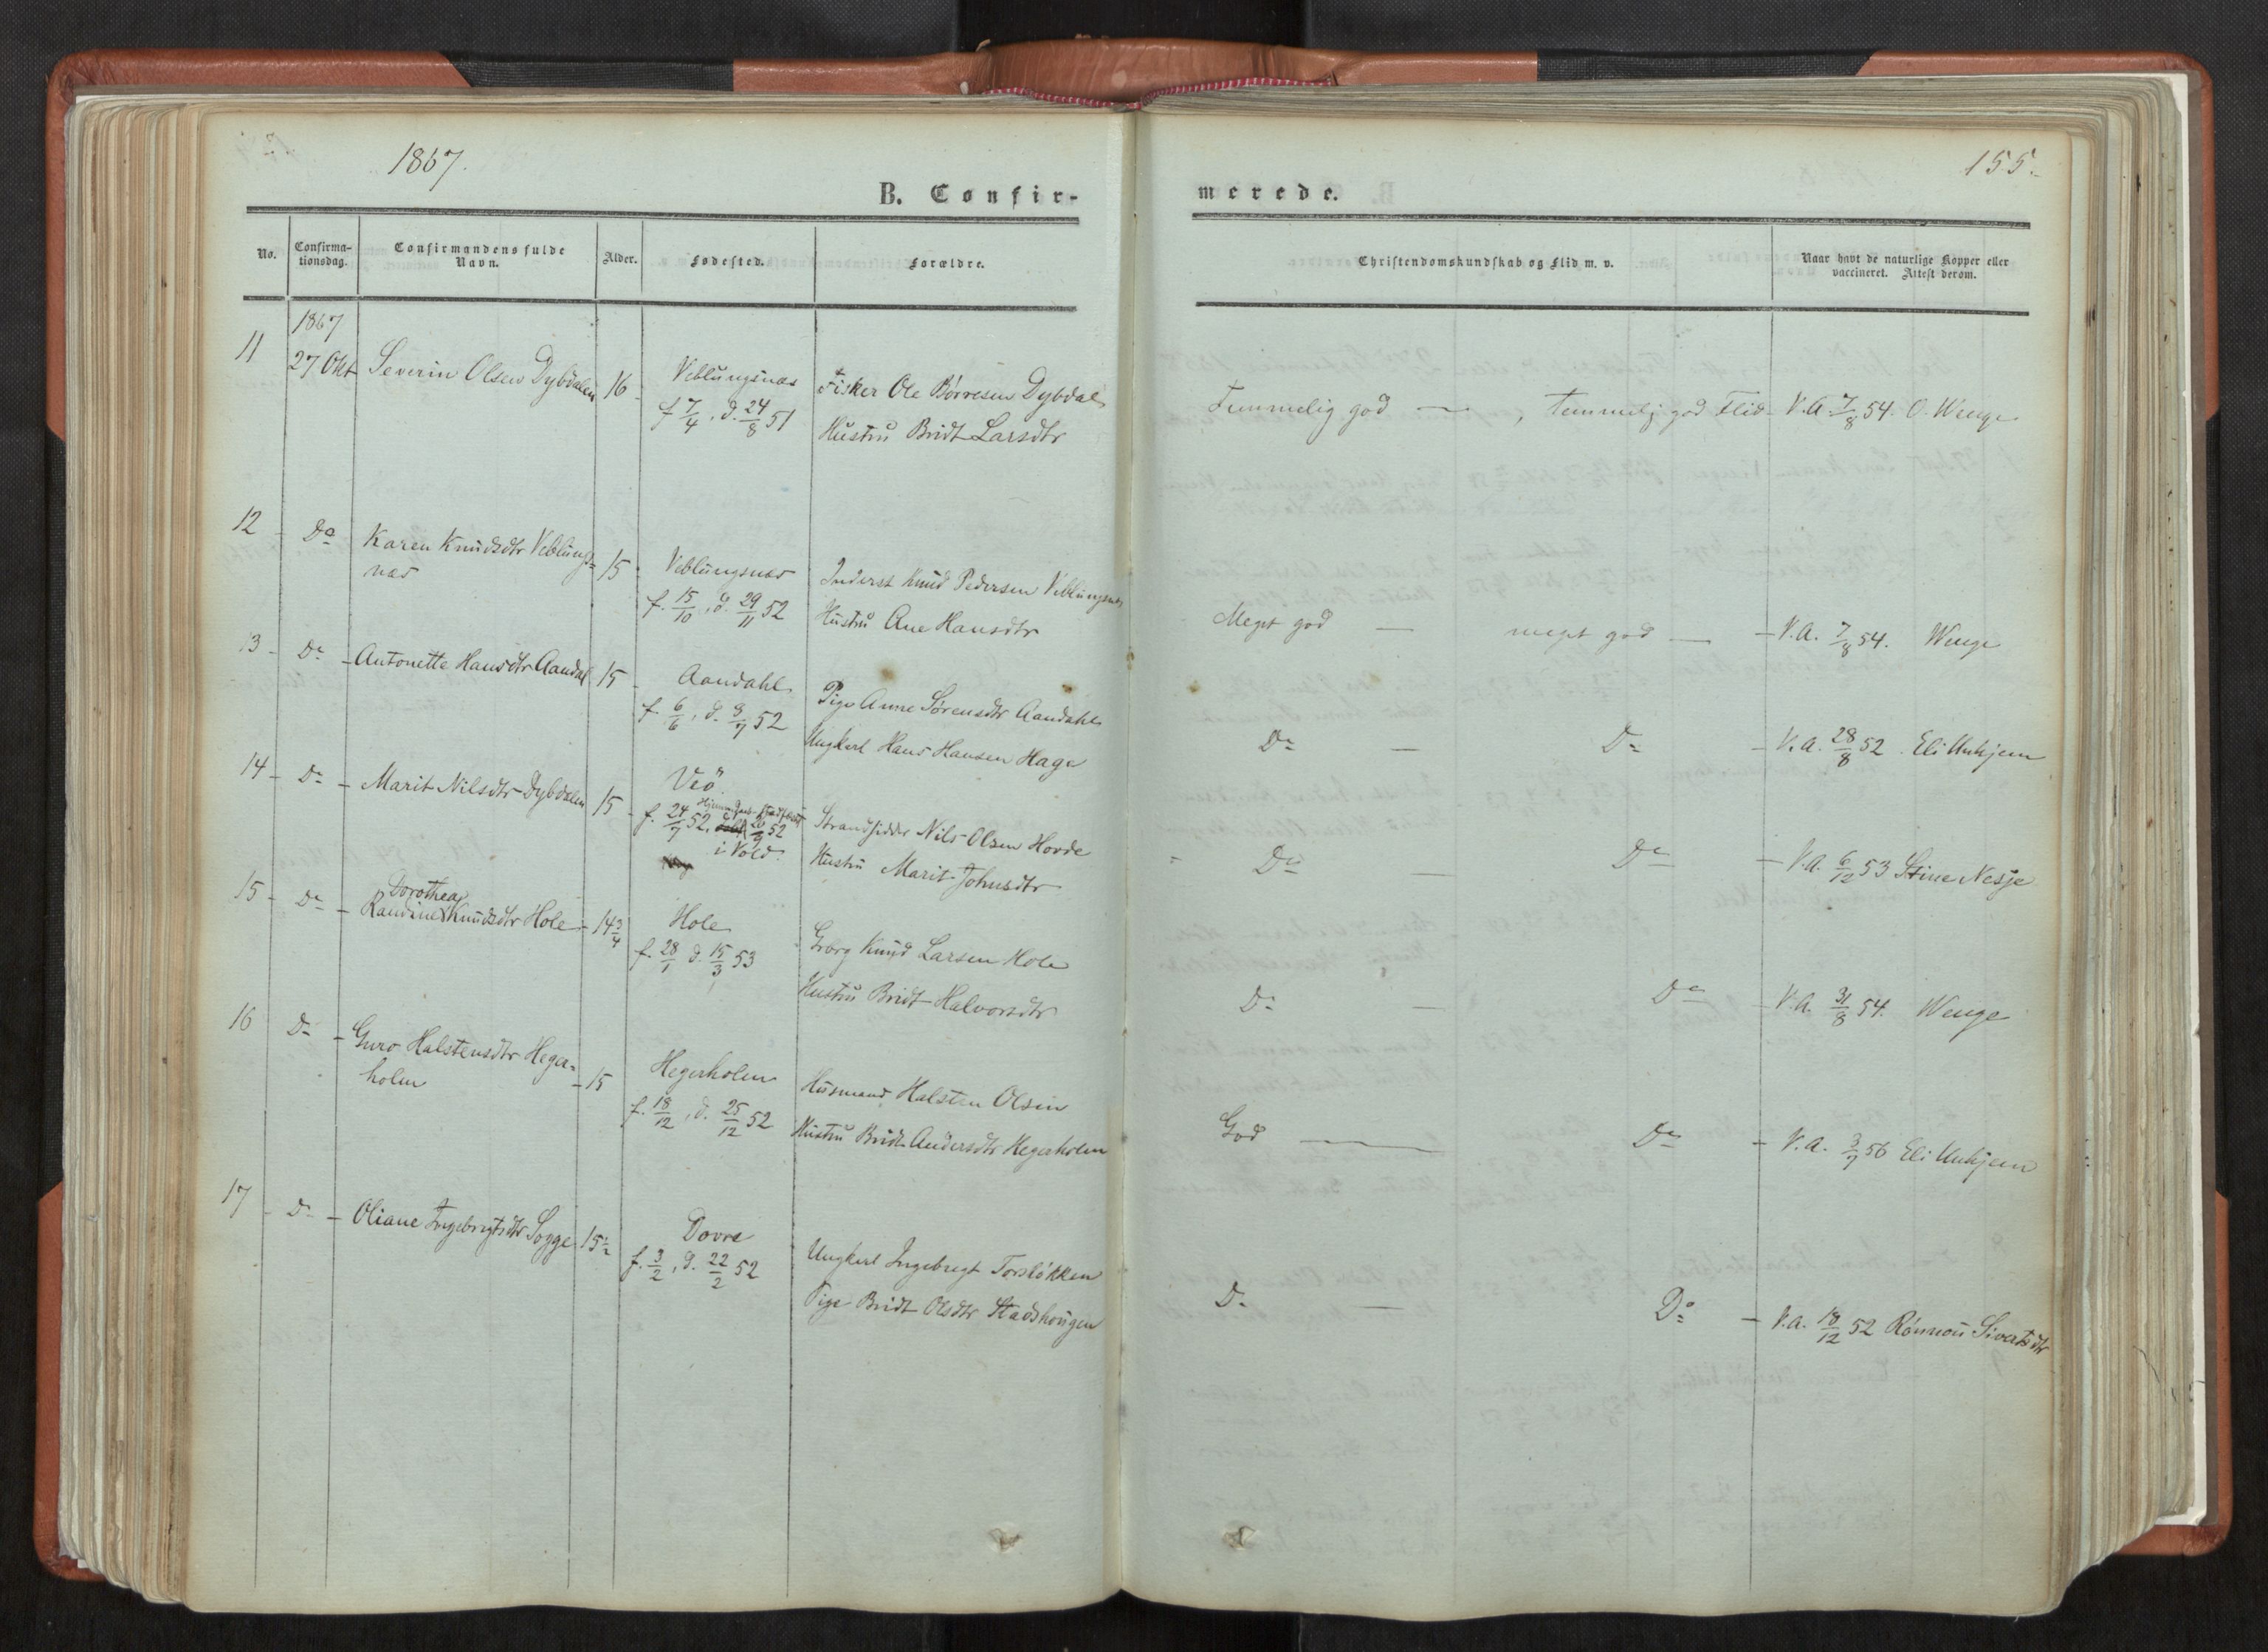 1867.
155.
B. Confir-
merede.
No.
Confirma-
tionsdag.
Confirmandens fulde
Navn.
Alder.
Fødested.
Forældre.
Christendomskundskab og Flid m. v.
Naar havt de naturlige Kopper eller
vaccineret. Attest derom.
1867
11 27 Okt Severin Olsen Dybdalen 16 - Veblungsnæs Fisker Ole Børresen Dybdal
f 7/4, d. 24/8 51 Hustru Bridt Larsdtr
Temmelig god — , temmelig god Flid - V.A. 7/8 54. O. Wenge
12 - Do Karen Knudsdtr Veblungs= 15 - Veblungsnæs Inderst Knud Pedersen Veblungsnæs
næs f. 15/10, d. 29/11 52 Hustru Ane Hansdtr
Meget god — meget god — - V.A. 7/8 54. Wenge
13 - Do - Antonette Hansdtr Aandal 15 - Aandahl Pige Anne Sørensdtr Aandahl
f. 6/6, d. 3/7 52 Ungkarl Hans Hansen Hage
Do — Do - V.A. 28/8 52. Eli Unhjem
14 - Do - Marit Nilsdtr Dybdalen 15 - Veö
f. 24/7 52, 26/9 52 Strandsidder Nils Olsen Hovde
i Vold. Hustru Marit Johnsdtr
Do — Do - V.A. 6/12 53 Stine Nesje
Dorothea
15 - Do - Randine Knudsdtr Hole - 14 3/4 Hole Grbrg Knud Larsen Hole
f. 28/1 d. 15/3 53 Hustru Bridt Halvorsdtr
Do — Do - V.A. 31/8 54. Wenge
16 Do - Guro Halstensdtr Heger= - 15 Hegerholm Husmand Halsten Olsen
holm f. 18/12, d. 25/12 52 Hustru Bridt Andersdtr Hegerholm
God — Do - V.A. 3/7 56 Eli Unhjem
17 - Do - Oliane Ingebrigtsdtr Sogge 15 1/2 Dovre Ungkarl Ingebrigt Torsløkken
f. 3/2, d. 22/2 52 Pige Bridt Olsdtr Stadshougen
Do — Do - V.A. 18/12 52 Rønnou Sivertsdtr